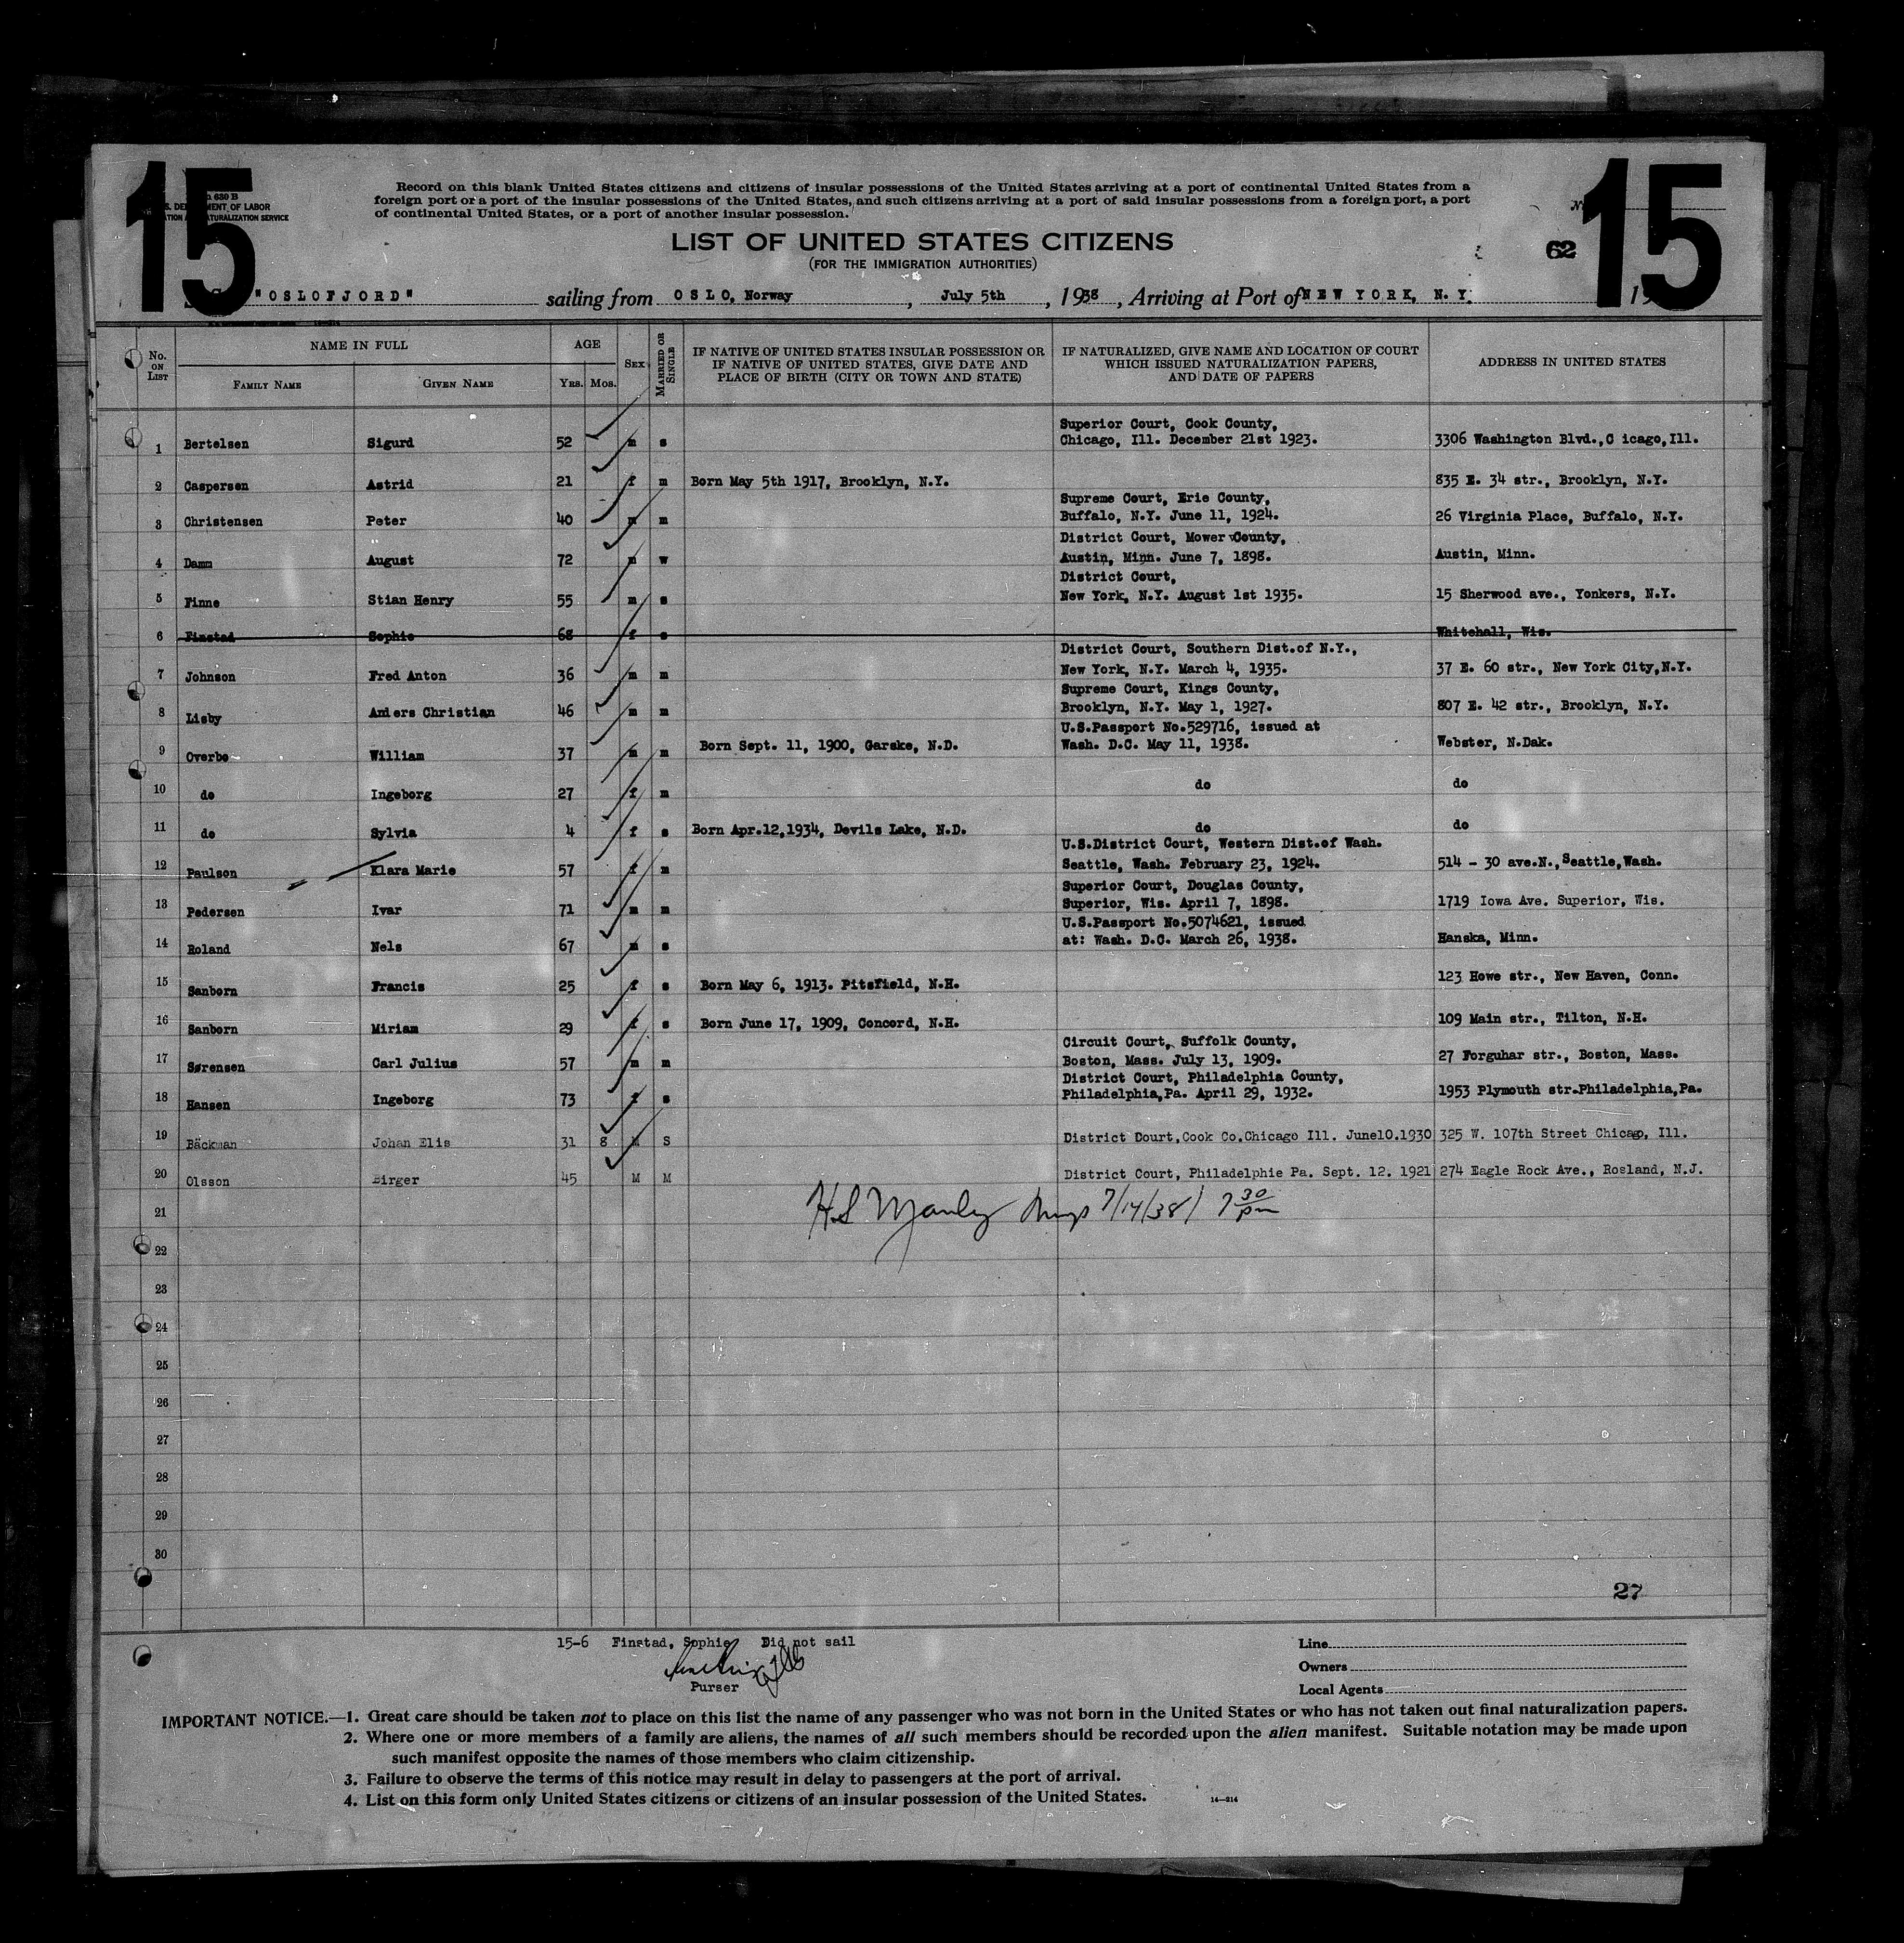 15
15
630 B
DEPARTMENT OF LABOR
NATURALIZATION SERVICE
Record on this blank United States citizens and citizens of insular possessions of the United States arriving at a port of continental United States from a
foreign port or a port of the insular possessions of the United States, and such citizens arriving at a port of said insular possessions from a foreign port, a port
of continental United States, or a port of another insular possession.
LIST OF UNITED STATES CITIZENS
(FOR THE IMMIGRATION AUTHORITIES)
62
"OSLOFJORD" sailing from OSLO, Norway, July 5th, 1938, Arriving at Port of NEW YORK, N.Y.
No. ON LIST
NAME IN FULL
FAMILY NAME
GIVEN NAME
AGE
YRS. MOS.
SEX
MARRIED OR SINGLE
IF NATIVE OF UNITED STATES INSULAR POSSESSION OR
IF NATIVE OF UNITED STATES, GIVE DATE AND
PLACE OF BIRTH (CITY OR TOWN AND STATE)
IF NATURALIZED, GIVE NAME AND LOCATION OF COURT
WHICH ISSUED NATURALIZATION PAPERS,
AND DATE OF PAPERS
ADDRESS IN UNITED STATES
Superior Court, Cook County,
1 Bertelsen Sigurd 52 m s Chicago, Ill. December 21st 1923. 3306 Washington Blvd.,C icago,Ill.
2 Caspersen Astrid 21 f m Born May 5th 1917, Brooklyn, N.Y. 835 E. 34 str., Brooklyn, N.Y.
Supreme Court, Erie County,
3 Christensen Peter 40 m m Buffalo, N.Y. June 11, 1924. 26 Virginia Place, Buffalo, N.Y.
District Court, Mower County,
4 Damm August 72 m w Austin, Minn. June 7, 1898. Austin, Minn.
District Court,
5 Finne Stian Henry 55 m s New York, N.Y. August 1st 1935. 15 Sherwood ave., Yonkers, N.Y.
6 Finstad Sophie 68 f s Whitehall, Wis.
District Court, Southern Dist.of N.Y.,
7 Johnson Fred Anton 36 m m New York, N.Y. March 4, 1935. 37 E. 60 str., New York City,N.Y.
Supreme Court, Kings County,
8 Lisby Anders Christian 46 m m Brooklyn, N.Y. May 1, 1927. 807 E. 42 str., Brooklyn, N.Y.
U.S.Passport No.529716, issued at
9 Overbo William 37 m m Born Sept. 11, 1900, Garske, N.D. Wash. D.C. May 11, 1938. Webster, N.Dak.
10 do Ingeborg 27 f m do do
11 do Sylvia 4 f s Born Apr.12,1934, Devils Lake, N.D. do do
U.S.District Court, Western Dist.of Wash.
12 Paulson Klara Marie 57 f m Seattle, Wash. February 23, 1924. 514 - 30 ave.N.,Seattle,Wash.
Superior Court, Douglas County,
13 Pedersen Ivar 71 m m Superior, Wis. April 7, 1898. 1719 Iowa Ave. Superior, Wis.
U.S.Passport No.5074621, issued
14 Roland Nels 67 m s at: Wash. D.C. March 26, 1938. Hanska, Minn.
15 Sanborn Francis 25 f s Born May 6, 1913. Pitsfield, N.H. 123 Howe str., New Haven, Conn.
16 Sanborn Miriam 29 f s Born June 17, 1909, Concord, N.H. 109 Main str., Tilton, N.H.
Circuit Court, Suffolk County,
17 Sørensen Carl Julius 57 m m Boston, Mass. July 13, 1909. 27 Forguhar str., Boston, Mass.
District Court, Philadelphia County,
18 Hansen Ingeborg 73 f s Philadelphia,Pa. April 29, 1932. 1953 Plymouth str.Philadelphia,Pa.
19 Bäckman Johan Elis 31 8 M S District Dourt,Cook Co.Chicago Ill. June10.1930 325 W. 107th Street Chicago, Ill.
20 Olsson Birger 45 M M District Court, Philadelphie Pa. Sept. 12. 1921 274 Eagle Rock Ave., Rosland, N.J.
21 H S Manley 7/14/38 7 30 pm
22
23
24
25
26
27
28
29
30
27
15-6 Finstad, Sophie Did not sail
Purser
Line
Owners
Local Agents
IMPORTANT NOTICE.—1. Great care should be taken not to place on this list the name of any passenger who was not born in the United States or who has not taken out final naturalization papers.
2. Where one or more members of a family are aliens, the names of all such members should be recorded upon the alien manifest. Suitable notation may be made upon
such manifest opposite the names of those members who claim citizenship.
3. Failure to observe the terms of this notice may result in delay to passengers at the port of arrival.
4. List on this form only United States citizens or citizens of an insular possession of the United States. 14—214